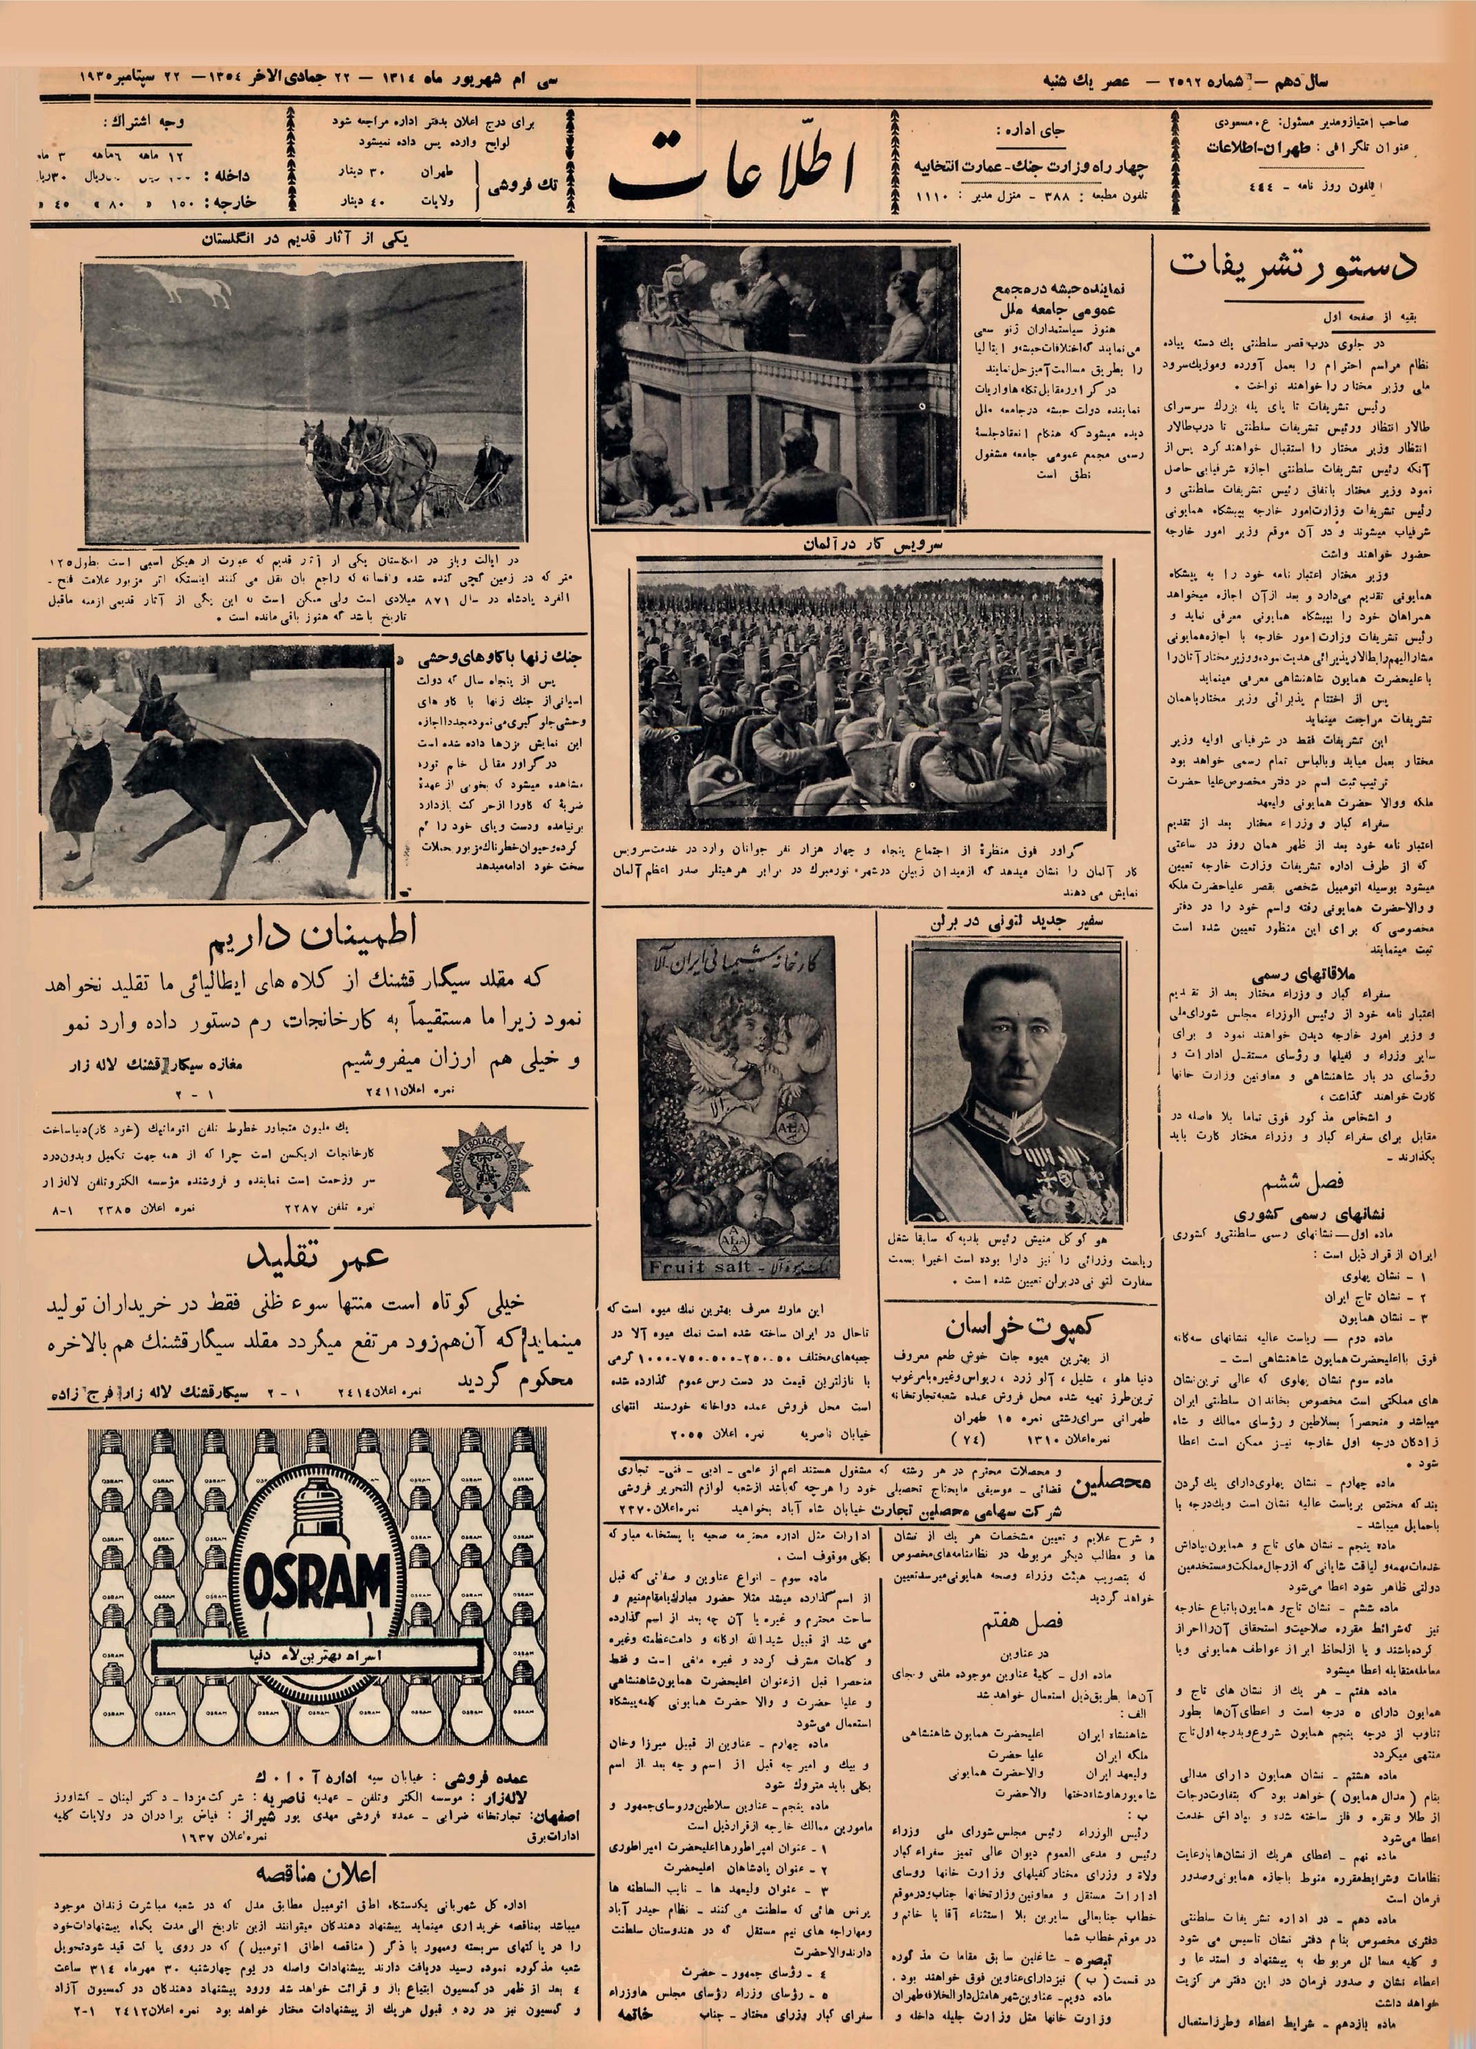 سال دهم — شماره ۲۵۹۲ — عصر یك شنبه
سی ام شهریور ماه ۱۳۱۴ — ۲۲ جمادی الاخر ۱۳۵٤ — ۲۲ سپتامبر ۱۹۳۵
صاحب امتیاز و مدیر مسئول: ع. مسعودی
عنوان تلگرافی: طهران-اطلاعات
تلفون روز نامه - ٤٤٤
جای اداره:
چهار راه وزارت جنك - عمارت انتخابیه
تلفون مطبعه: ۳۸۸ - منزل مدیر: ۱۱۱۰
اطلّاعات
برای درج اعلان بدفتر اداره مراجعه شود
لوایح وارده پس داده نمیشود
تك فروشی
طهران ۳۰ دینار
ولایات ٤۰ دینار
وجه اشتراك:
۱۲ ماهه ۶ماهه ۳ ماه
داخله:
خارجه: ۱۵۰ » ۸۰ » ٤۵ »
دستور تشریفات
بقیه از صفحه اول
در جلوی درب قصر سلطنتی یك دسته پیاده
نظام مراسم احترام را بعمل آورده وموزیك سرود
ملی وزیر مختار را خواهند نواخت .
رئیس تشریفات تا پای پله بزرك سرسرای
طالار انتظار ورئیس تشریفات سلطنتی تا درب طالار
انتظار وزیر مختار را استقبال خواهند کرد پس از
آنکه رئیس تشریفات سلطنتی اجازه شرفیابی حاصل
نمود وزیر مختار باتفاق رئیس تشریفات سلطنتی و
رئیس تشریفات وزارت امور خارجه بپیشگاه همایونی
شرفیاب میشوند و در آن موقع وزیر امور خارجه
حضور خواهند داشت
وزیر مختار اعتبار نامه خود را به پیشگاه
همایونی تقدیم می‌دارد و بعد از آن اجازه میخواهد
همراهان خود را بپیشگاه همایونی معرفی نماید و
رئیس تشریفات وزارت امور خارجه با اجازه همایونی
مشارالیهم را بطالار پذیرائی هدایت نموده و وزیر مختار آنان را
باعلیحضرت همایون شاهنشاهی معرفی مینماید
پس از اختتام پذیرائی وزیر مختار باهمان
تشریفات مراجعت مینماید
این تشریفات فقط در شرفیابی اولیه وزیر
مختار بعمل میاید و بالباس تمام رسمی خواهد بود
ترتیب ثبت اسم در دفتر مخصوص علیا حضرت
ملکه ووالا حضرت همایونی ولیعهد
سفراء کبار و وزراء مختار بعد از تقدیم
اعتبار نامه خود بعد از ظهر همان روز در ساعتی
که از طرف اداره تشریفات وزارت خارجه تعیین
میشود بوسیله اتومبیل شخصی بقصر علیاحضرت ملکه
و والاحضرت همایونی رفته واسم خود را در دفتر
مخصوصی که برای این منظور تعیین شده است
ثبت مینمایند
ملاقاتهای رسمی
سفراء کبار و وزراء مختار بعد از تقدیم
اعتبار نامه خود از رئیس الوزراء مجلس شورای ملی
و وزیر امور خارجه دیدن خواهند نمود و برای
سایر وزراء و کفیلها و رؤسای مستقل ادارات و
رؤسای در بار شاهنشاهی و معاونین وزارت خانها
کارت خواهند گذاشت،
و اشخاص مذکور فوق تماما بلا فاصله در
مقابل برای سفراء کبار و وزراء مختار کارت باید
بگذارند -
فصل ششم
نشانهای رسمی کشوری
ماده اول — نشانهای رسمی سلطنتی و کشوری
ایران از قرار ذیل است:
۱ - نشان پهلوی
۲ - نشان تاج ایران
۳ - نشان همایون
ماده دوم — ریاست عالیه نشانهای سه گانه
فوق بااعلیحضرت همایون شاهنشاهی است -
ماده سوم نشان پهلوی که عالی ترین نشان
های مملکتی است مخصوص بخاندان سلطنتی ایران
میباشد و منحصراً بسلاطین و رؤسای ممالك و شاه
زادگان درجه اول خارجه نیز ممکن است اعطا
شود .
ماده چهارم - نشان پهلوی دارای یك گردن
بند که مختص بریاست عالیه نشان است ویك درجه با
باحمایل میباشد -
ماده پنجم - نشان های تاج و همایون بپاداش
خدمات مهمه و لیاقت شایانی که از رجال مملکت و مستخدمین
دولتی ظاهر شود اعطا می‌شود
ماده ششم - نشان تاج و همایون باتباع خارجه
نیز که شرائط مقرره صلاحیت و استحقاق آن را احراز
کرده باشند و یا از لحاظ ابراز عواطف همایونی ویا
معامله متقابله اعطا میشود
ماده هفتم - هر یك از نشان های تاج و
همایون دارای ۵ درجه است و اعطای آن‌ها بطور
تناوب از درجه پنجم همایون شروع و بدرجه اول تاج
منتهی میگردد
ماده هشتم - نشان همایون دارای مدالی
بنام ( مدال همایون ) خواهد بود که بتفاوت درجات
از طلا و نقره و فلز ساخته شده و بپاداش خدمت
اعطا می‌شود
ماده نهم - اعطای هریك از نشان‌ها با رعایت
نظامات وشرایط مقرره منوط باجازه همایونی و صدور
فرمان است
ماده دهم - در اداره تشریفات سلطنتی
دفتری مخصوص بنام دفتر نشان تاسیس می شود
و کلیه مسائل مربوطه به پیشنهاد و استدعا و
اعطاء نشان و صدور فرمان در این دفتر مرکزیت
خواهد داشت
ماده یازدهم - شرایط اعطاء وطرز استعمال
نماینده حبشه در مجمع
عمومی جامعه ملل
هنوز سیاستمداران ژنو سعی
می‌نمایند که اختلافات حبشه و ایتالیا
را بطریق مسالمت آمیز حل نمایند
در گراور مقابل
نماینده دولت حبشه در جامعه ملل
دیده میشود که هنگام انعقاد جلسهٔ
رسمی مجمع عمومی جامعه مشغول
نطق است
سرویس کار در آلمان
گراور فوق منظرهٔ از اجتماع پنجاه و چهار هزار نفر جوانان وارد در خدمت سرویس
کار آلمان را نشان میدهد که از میدان زپلن در شهر نورمبرك در برابر هر هیتلر صدر اعظم آلمان
نمایش می دهند
سفیر جدید لتونی در برلن
ریاست وزرائی را نیز دارا بوده است اخیرا بسمت
سفارت لتونی در برلن تعیین شده است .
کمپوت خراسان
از بهترین میوه جات خوش طعم معروف
دنیا هلو ، شلیل ، آلو زرد ، ریواس وغیره بامرغوب
ترین طرز تهیه شده محل فروش عمده شعبه تجارتخانه
طهرانی سرای رشتی نمره ۱۵ طهران
نمره اعلان ۱۳۱۰ (۷٤)
کارخانه شیمیائی ایران - آلا
آلا
ALA
A
ALA
A
Fruit salt - نمك میوه آلا
این مارك معرف بهترین نمك میوه است که
تاحال در ایران ساخته شده است نمك میوه آلا در
جعبه‌های مختلف ۵۰-۲۵۰-۵۰۰-۷۵۰-۱۰۰۰ گرمی
با نازلترین قیمت در دست رس عموم گذارده شده
است محل فروش عمده دواخانه خورسند انتهای
خیابان ناصریه نمره اعلان ۲۰۵۵
محصلین
و محصلات محترم در هر رشته که مشغول هستند اعم از علمی - ادبی - فنی - تجاری
قضائی - موسیقی مایحتاج تحصیلی خود را هرچه که باشد از شعبه لوازم التحریر فروشی
شرکت سهامی محصلین تجارت خیابان شاه آباد بخواهید نمره اعلان ۲۳۷۰
و شرح علایم و تعیین مشخصات هر یك از نشان
ها و مطالب دیگر مربوطه در نظامنامه‌های مخصوص
که بتصویب هیئت وزراء وصحه همایونی میرسد تعیین
خواهد گردید
فصل هفتم
در عناوین
ماده اول - کلیهٔ عناوین موجوده ملغی و بجای
آن‌ها بطریق ذیل استعمال خواهد شد
الف:
شاهنشاه ایران اعلیحضرت همایون شاهنشاهی
ملکه ایران علیا حضرت
ولیعهد ایران والاحضرت همایونی
شاه پورها و شاهدختها والاحضرت
ب:
رئیس الوزراء رئیس مجلس شورای ملی وزراء
رئیس و مدعی العموم دیوان عالی تمیز سفراء کبار
ولاة و وزرای مختار کفیلهای وزارت خانها روسای
ادارات مستقل و معاونین وزارتخانها جناب و در موقع
خطاب جنابعالی سایرین بلا استثناء آقا یا خانم و
در موقع خطاب شما
تبصره - شاغلین سابق مقامات مذکوره
در قسمت ( ب ) نیز دارای عناوین فوق خواهند بود .
ماده دویم - عناوین شهرها مثل دارالخلافه طهران
وزارت خانها مثل وزارت جلیله داخله و
ادارات مثل اداره محترمه صحیه یا پستخانه مبارکه
بکلی موقوف است .
ماده سوم - انواع عناوین و صفاتی که قبل
از اسم گذارده میشد مثلا حضور مبارك یا مقام منیع و
ساحت محترم و غیره یا آن چه بعد از اسم گذارده
می شد از قبیل شیدالله ارکانه و دامت عظمته وغیره
و کلمات مشرف گردد و غیره ملغی است و فقط
منحصرا قبل از عنوان اعلیحضرت همایون شاهنشاهی
و علیا حضرت و والا حضرت همایونی کلمه پیشگاه
استعمال می‌شود
ماده چهارم - عناوین از قبیل میرزا وخان
و بیك و امیر چه قبل از اسم و چه بعد از اسم
بکلی باید متروك شود
ماده پنجم - عناوین سلاطین و روسای جمهور و
مامورین ممالك خارجه از قرار ذیل است
۱ - عنوان امپراطورها اعلیحضرت امپراطوری
۲ - عنوان پادشاهان اعلیحضرت
۳ - عنوان ولیعهد ها - نایب السلطنه ها
پرنس هائی که سلطنت می کنند - نظام حیدر آباد
ومهاراجه های نیم مستقل که در هندوستان سلطنت
دارند والاحضرت
٤ - رؤسای جمهور - حضرت
۵ - رؤسای وزراء رؤسای مجلس ها وزراء
سفرای کبار وزرای مختار - جناب خاتمه
یکی از آثار قدیم در انگلستان
در ایالت ویلز در انگلستان یکی از آثار قدیم که عبارت از هیکل اسبی است بطول ۱۲۵
متر که در زمین گچی کنده شده و افسانه که راجع بان نقل می کنند اینستکه اثر مزبور علامت فتح -
الفرد پادشاه در سال ۸۷۱ میلادی است ولی ممکن است که این یکی از آثار قدیمی ازمنه ماقبل
تاریخ باشد که هنوز باقی مانده است .
جنك زنها با گاوهای وحشی
پس از پنجاه سال که دولت
اسپانی از جنك زنها با گاو های
وحشی جلوگیری می نمود مجددا اجازه
این نمایش بزن‌ها داده شده است
در گراور مقابل خانم توره
مشاهده میشود که بخوبی از عهدهٔ
ضربهٔ که گاو را از حرکت بازدارد
برنیامده ودست وپای خود را گم
کرده و حیوان خطرناك مزبور بحملات
سخت خود ادامه میدهد
اطمینان داریم
که مقلد سیگار قشنك از کلاه های ایطالیائی ما تقلید نخواهد
نمود زیرا ما مستقیماً به کارخانجات رم دستور داده وارد نمو
و خیلی هم ارزان میفروشیم مغازه سیگار قشنك لاله زار
نمره اعلان ۲٤۱۱ ۱ - ۲
TELEFONAKTIEBOLAGET L.M. ERICSSON
یك ملیون متجاوز خطوط تلفن اتوماتیك (خود کار) دنیا ساخت
کارخانجات اریکسن است چرا که از همه جهت تکمیل و بدون درد
سر وزحمت است نماینده و فروشنده مؤسسه الکتروتلفن لاله‌زار
نمره تلفن ۲۲۸۷ نمره اعلان ۲۳۸۵ ۱-۸
عمر تقلید
خیلی کوتاه است منتها سوء ظنی فقط در خریداران تولید
مینماید که آن‌هم زود مرتفع میگردد مقلد سیگار قشنك هم بالاخره
محکوم گردید
نمره اعلان ۲٤۱٤ ۱ - ۲ سیگار قشنك لاله زار فرج زاده
OSRAM
اسرام بهترین لامپ دنیا
عمده فروشی: خیابان سپه اداره آ . ا . گ
لاله‌زار: موسسه الکتروتلفن - مهدیه ناصریه: شرکت مزدا - دکتر لبنان - کشاورز
اصفهان: تجارتخانه ضرابی - عمده فروشی مهدی پور شیراز: فیاض برادران در ولایات کلیه
ادارات برق نمره اعلان ۱٦۳۷
اعلان مناقصه
اداره کل شهربانی یکدستگاه اطاق اتومبیل مطابق مدل که در شعبه مباشرت زندان موجود
میباشد بمناقصه خریداری مینماید پیشنهاد دهندگان میتوانند ازین تاریخ الی مدت یکماه پیشنهادات خود
را در پاکتهای سربسته وممهور با ذکر ( مناقصه اطاق اتومبیل ) که در روی پاکت قید شود تحویل
شعبه مذکوره نموده رسید دریافت دارند پیشنهادات واصله در یوم چهارشنبه ۳۰ مهرماه ۳۱٤ ساعت
٤ بعد از ظهر در کمیسیون ابتیاع باز و قرائت خواهد شد ورود پیشنهاد دهندگان در کمیسیون آزاد
و کمیسیون نیز در رد و قبول هریك از پیشنهادات مختار خواهد بود نمره اعلان ۲٤۱۲ ۱-۲